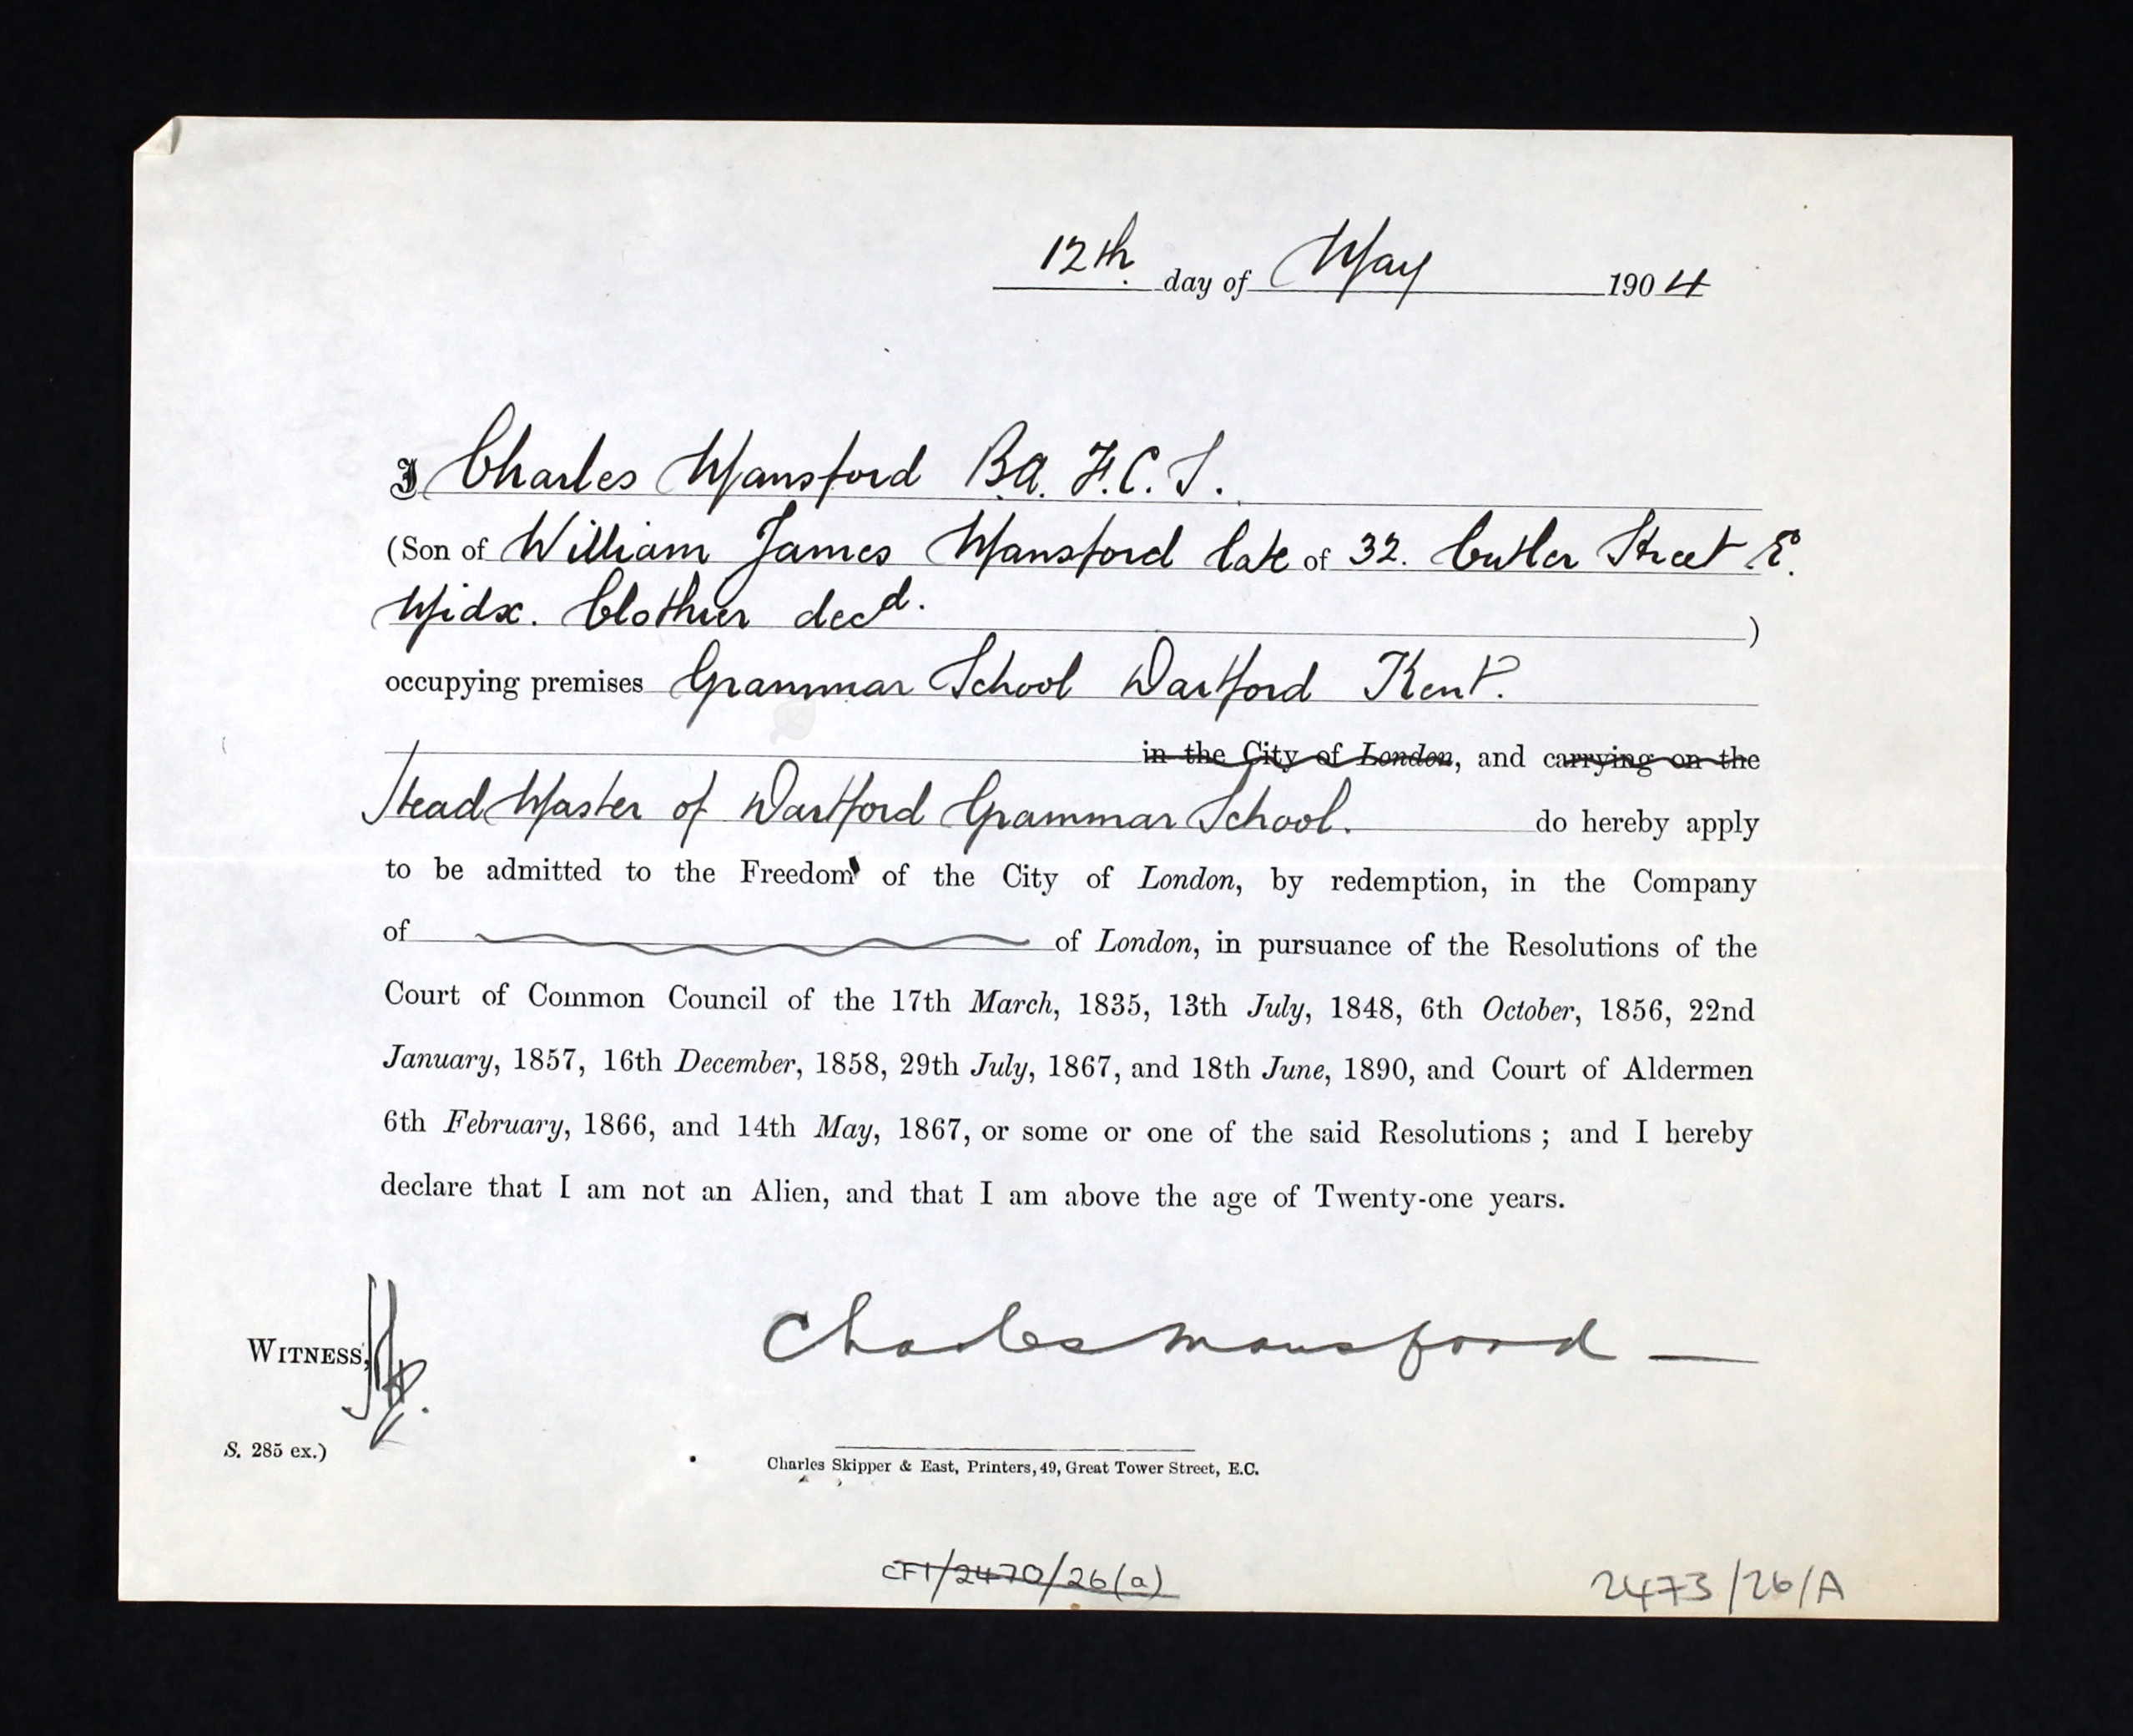 12th. day of May 1904
I Charles Mansford B.A. F.C.S.
(Son of William James Mansford late of 32. Cutler Street E.
Midx. Clothier decd.)
occupying premises Grammar School Dartford Kent.
in the City of London, and carrying on the
Head Master of Dartford Grammar School. do hereby apply
to be admitted to the Freedom of the City of London, by redemption, in the Company
of of London, in pursuance of the Resolutions of the
Court of Common Council of the 17th March, 1835, 13th July, 1848, 6th October, 1856, 22nd
January, 1857, 16th December, 1858, 29th July, 1867, and 18th June, 1890, and Court of Aldermen
6th February, 1866, and 14th May, 1867, or some or one of the said Resolutions ; and I hereby
declare that I am not an Alien, and that I am above the age of Twenty-one years.
WITNESS,
Charles Mansford —
S. 285 ex.)
Charles Skipper & East, Printers, 49, Great Tower Street, E.C.
CF1/2470/26(a)
2473/26/A